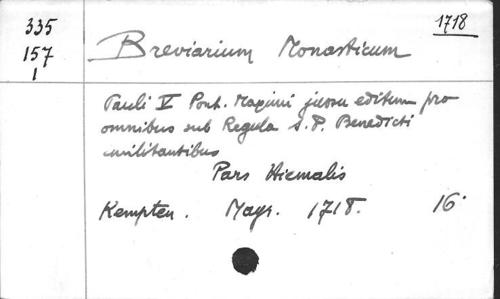 335
157
1
1718
Breviarium Monasticum
Pauli V Pont. Maximi jussu editum pro
omnibus sub Regula S. P. Benedicti
militantibus
Pars Hiemalis
Kempten. Mayr. 1718. 16°